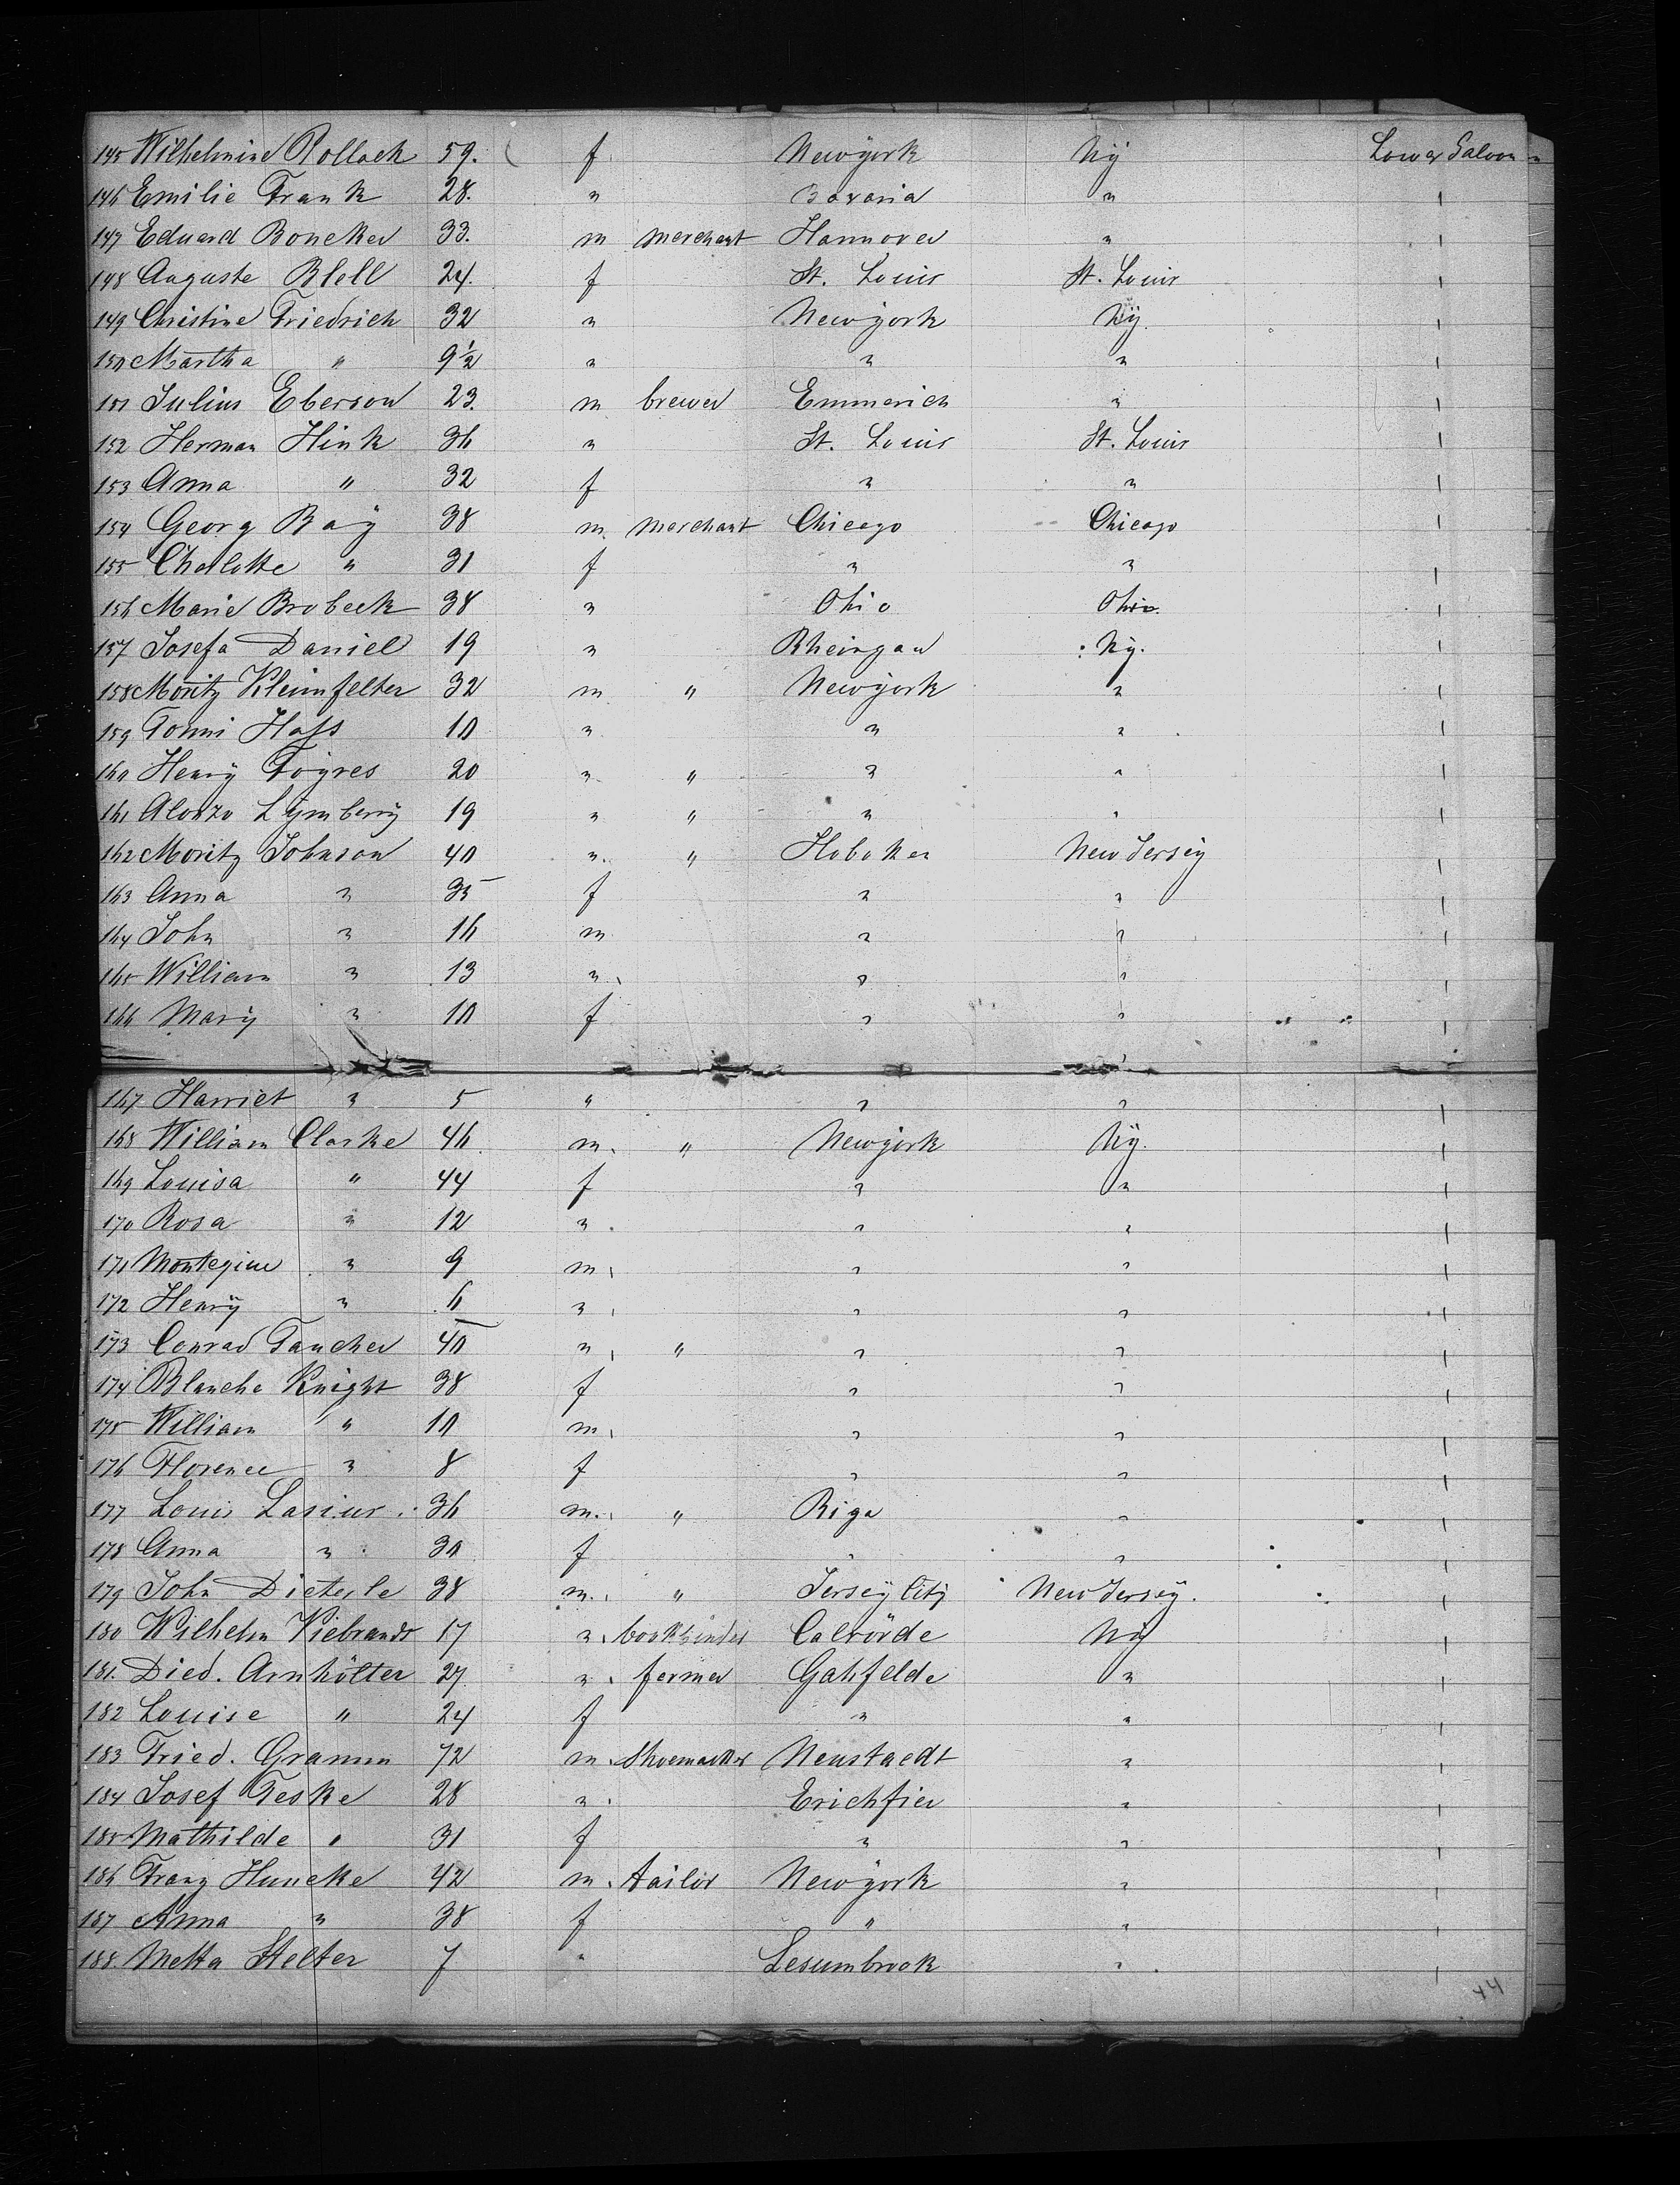 145 Wilhelmine Pollack 59. f. Newyork Ny Lower Saloon
146 Emilie Frank 28. " Bavaria "
147 Eduard Boneker 33. m merchant Hannover "
148 Auguste Blell 24. f St. Louis St. Louis
149 Christine Friedrich 32 " Newyork Ny.
150 Martha " 9½ " " "
151 Julius Eberson 23. m brewer Emmerich "
152 Herman Hink 36 " St. Louis St. Louis
153 Anna " 32 f " "
154 Georg Bay 38 m. merchant Chicago Chicago
155 Charlotte " 31 f " "
156 Marie Brobeck 38 " Ohio Ohio.
157 Josefa Daniel 19 " Rheingau Ny.
158 Moritz Kleinfelter 32 m " Newyork "
159 Tonni Hass 10 " " "
160 Henry Foyres 20 " " " "
161 Alonzo Lymberry 19 " " " "
162 Moritz Johnson 40 " " Hoboken New Jersey
163 Anna " 35 f " "
164 John " 16 m " "
165 William " 13 " " "
166 Mary " 10 f " "
167 Harriet " 5 " " "
168 William Clarke 46. m. " Newyork Ny.
169 Louisa " 44 f " "
170 Rosa " 12 " " "
171 Montegine " 9 m. " "
172 Henry " 6 " " "
173 Conrad Taucher 40 " " " "
174 Blanche Knight 38 f " "
175 William " 10 m. " "
176 Florence " 8 f " "
177 Louis Lasius 36 m. " Riga "
178 Anna " 30 f " "
179 John Dieterle 38 m. " Jersey City New Jersey.
180 Wilhelm Viebrandt 17 " bookbinder Calvörde Ny
181. Died. Arnhölter 27 " farmer Gahfelde "
182 Louise " 24 f " "
183 Fried. Gramm 72 m. Shoemacker Neustaedt "
184 Josef Teske 28 " Erichfier "
185 Mathilde " 31 f " "
186 Franz Huneke 42 m. tailor Newyork "
187 Anna " 38 f " "
188. Metta Stelter 7 " Lesumbrook "
44